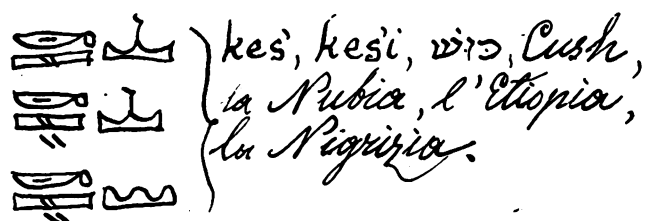 keś, keśi, כוש, Cush,
la Nubia, l'Etiopia,
la Nigrizia.